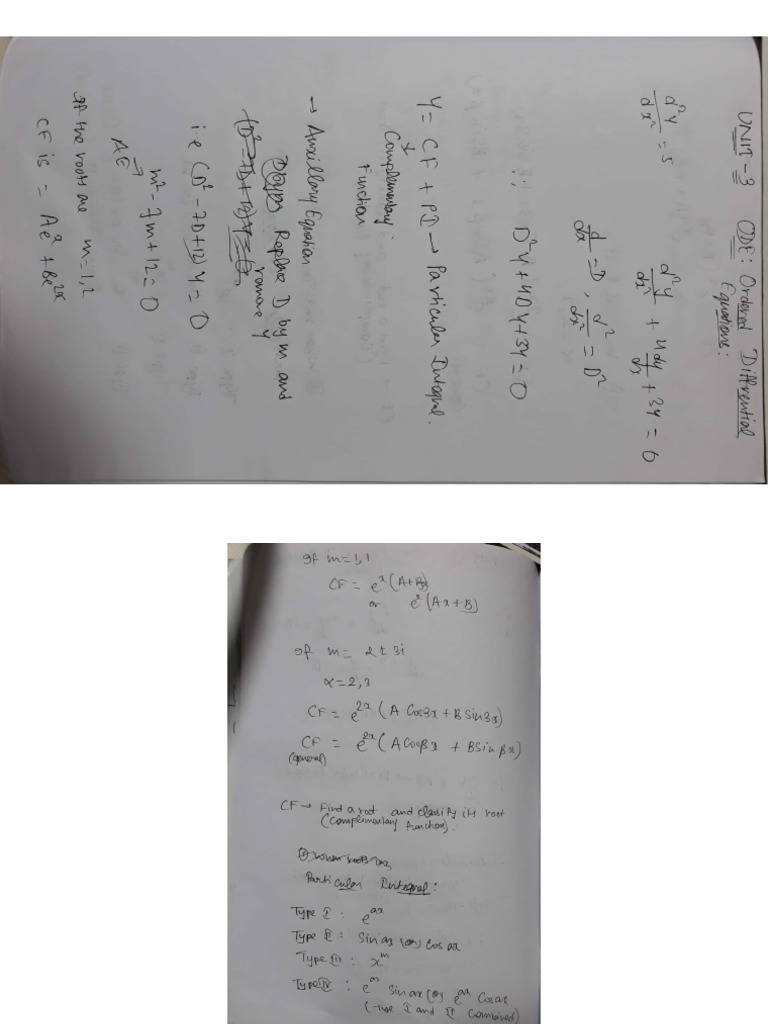 UNIT-3 ODE: Ordered Differential
Equations:
d²y/dx² = 5
d²y/dx² + 4dy/dx + 3y = 6
d/dx = D, d²/dx² = D²
∴ D²y + 4Dy + 3y = 0
Y = CF + PI → Particular Integral.
↓
Complementary
Function
→ Auxillary Equation
Replace D by m and
remove y
(D² - 7D + 12)Y = 0
i.e (D² - 7D + 12) Y = 0
AE → m² - 7m + 12 = 0
If the roots are m = 1, 2
CF is = Ae^x + Be^2x
If m = 1, 1
CF = e^x (A + Bx)
or e^x (Ax + B)
If m = 2 ± 3i
α = 2, 3
CF = e^2x (A Cos3x + B Sin3x)
CF = e^αx (A Cosβx + B Sin βx)
(general)
CF → Find a root and classify its root
(Complementary function).
Particular Integral:
Type I: e^ax
Type II: Sin ax (or) Cos ax
Type III: x^m
Type IV: e^ax Sin ax (or) e^ax Cos ax
(Type I and II Combined)